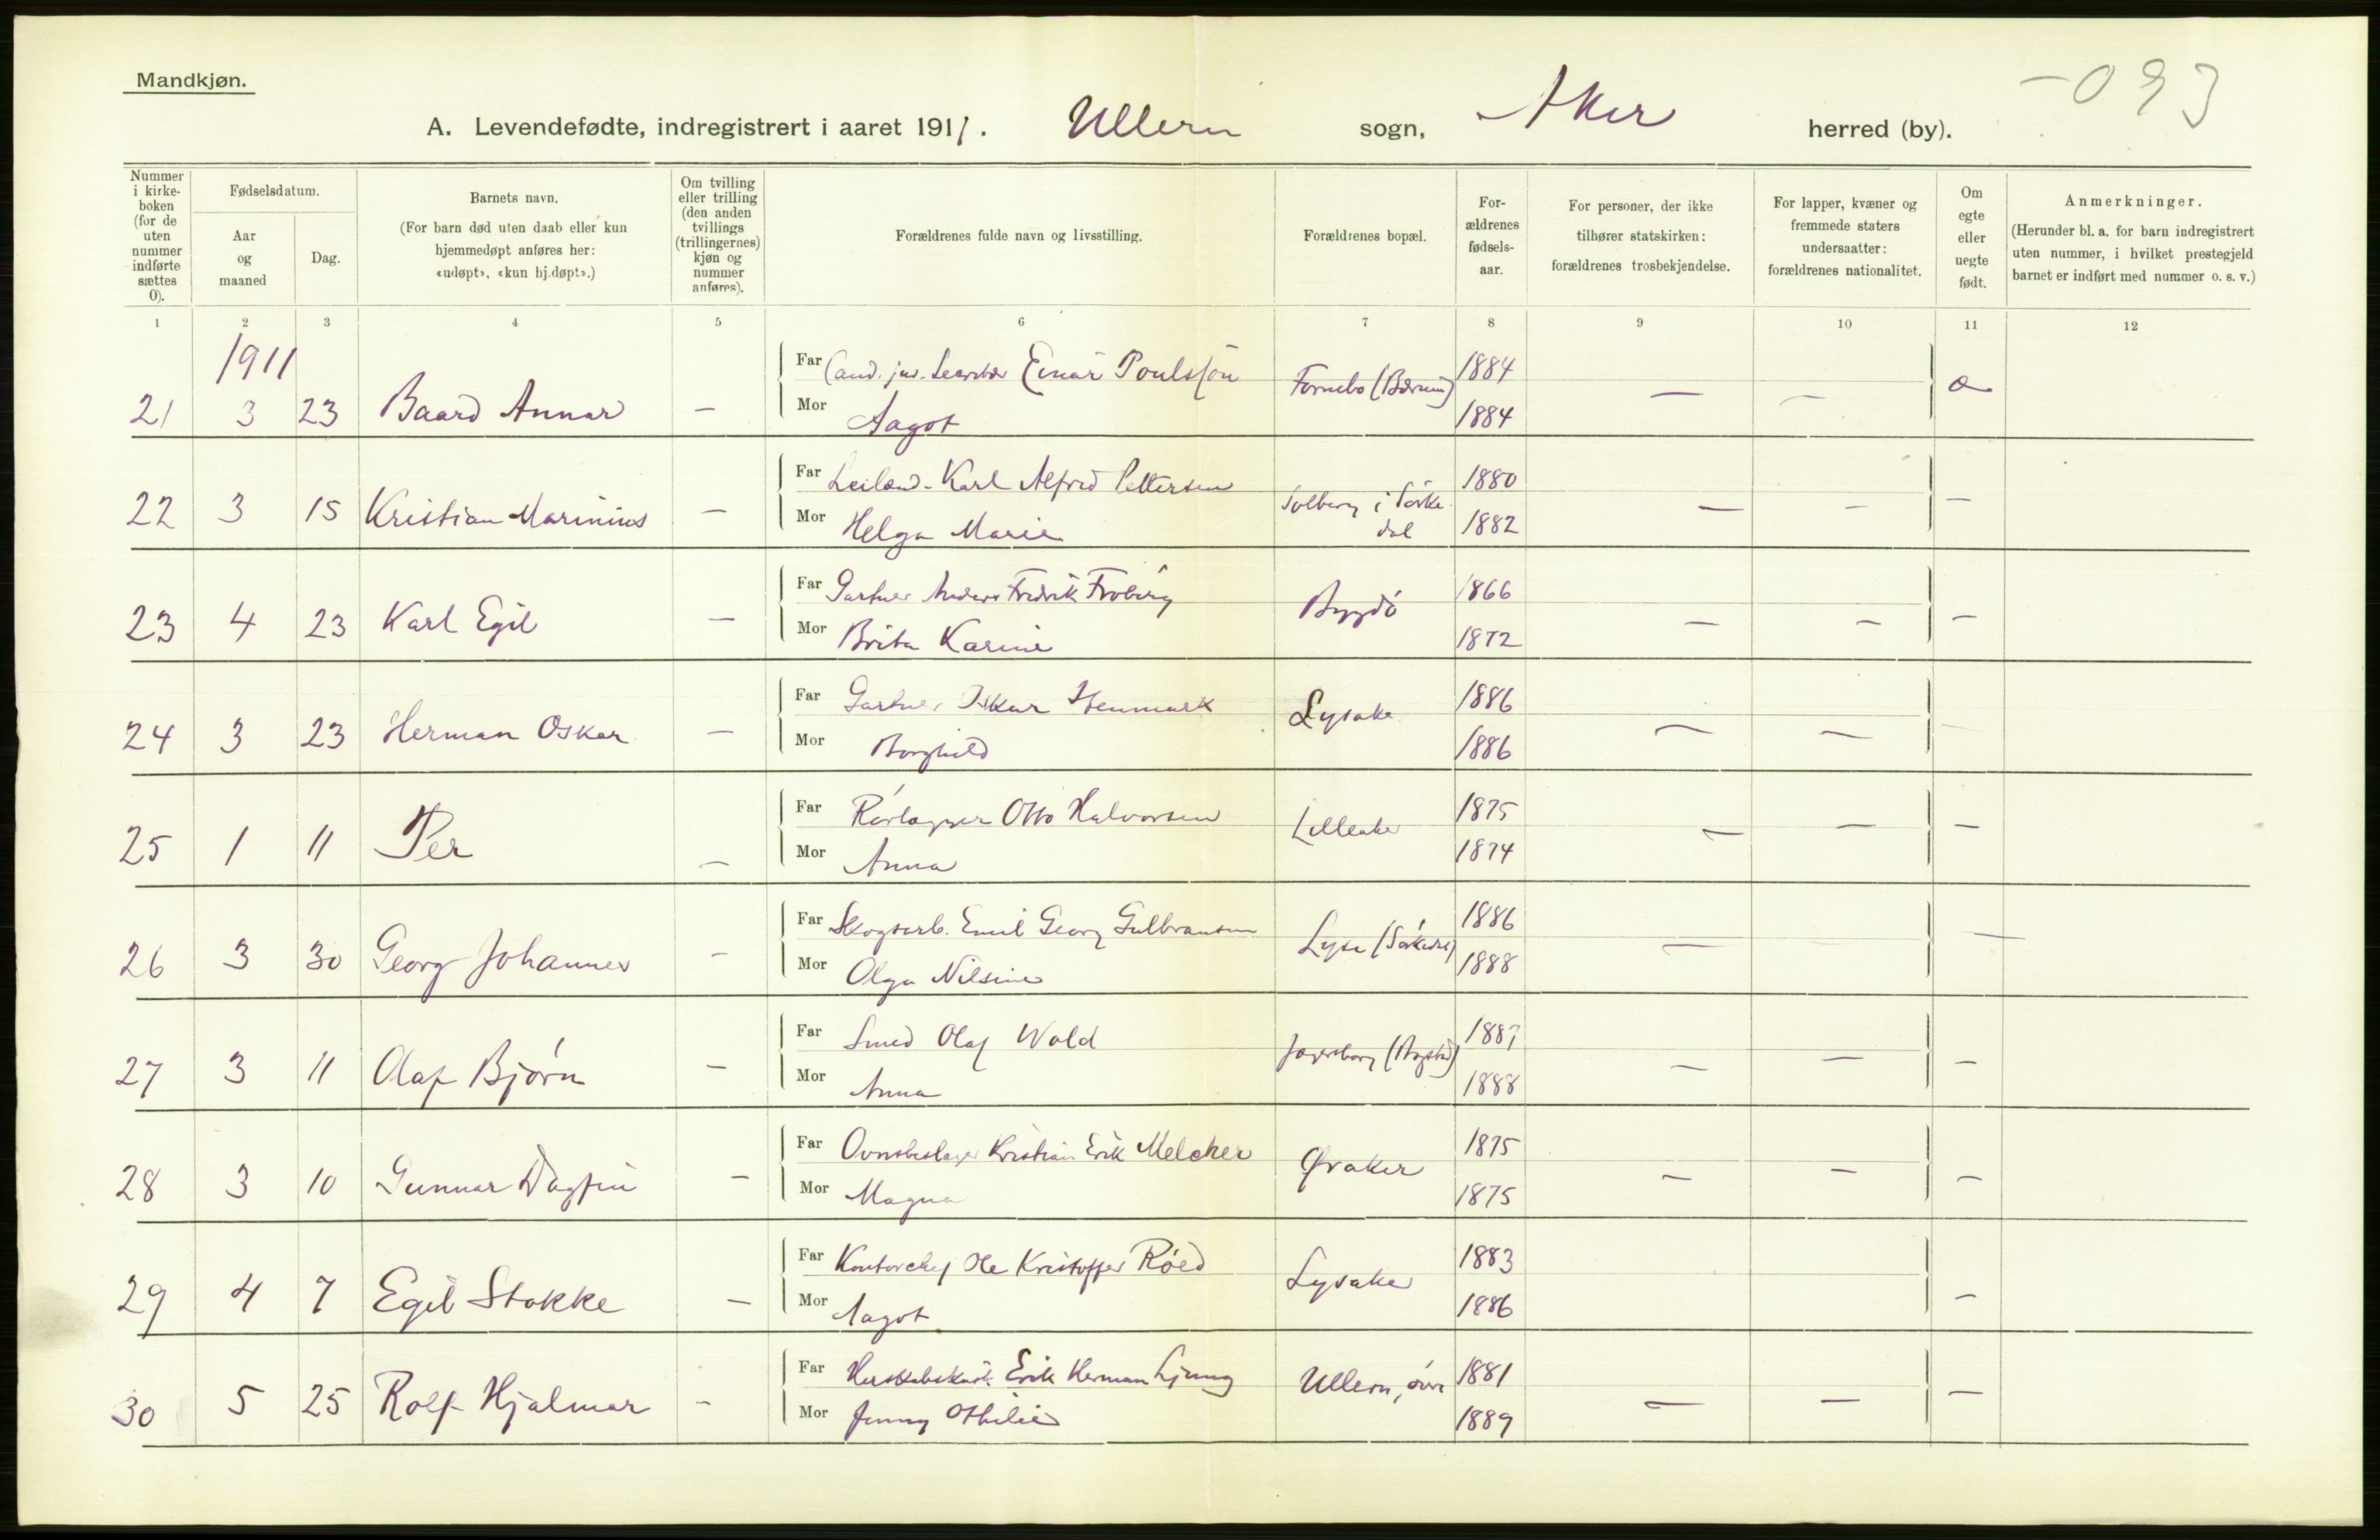 Mandkjøn.
-093
A. Levendefødte, indregistrert i aaret 1911. Ullern sogn, Aker herred (by).
Nummer i kirke-boken (for de uten nummer indførte sættes 0).
Fødselsdatum.
Aar og maaned
Dag.
Barnets navn.
(For barn død uten daab eller kun hjemmedøpt anføres her: «udøpt», «kun hj.døpt».)
Om tvilling eller trilling (den anden tvillings (trillingernes) kjøn og nummer anføres).
Forældrenes fulde navn og livsstilling.
Forældrenes bopæl.
For-ældrenes fødsels-aar.
For personer, der ikke tilhører statskirken: forældrenes trosbekjendelse.
For lapper, kvæner og fremmede staters undersaatter: forældrenes nationalitet.
Om egte eller uegte født.
Anmerkninger.
(Herunder bl. a. for barn indregistrert uten nummer, i hvilket prestegjeld barnet er indført med nummer o. s. v.)
1 2 3 4 5 6 7 8 9 10 11 12
1911
Far Cand. jur. Einar Poulsson Fornebo (Bærum) 1884
21 3 23 Baard Annar — Mor Aagot 1884 — —
Far Karl Alfred Pettersen Solberg i Sørke- 1880
22 3 15 Kristian Marinius — Mor Helga Marie dal 1882 — — —
Far Gartner Anders Fredrik Froberg Bygdö 1866
23 4 23 Karl Egil — Mor Brita Karine 1872 — — —
Far Gartner Oskar Stenmark Lysaker 1886
24 3 23 Herman Oskar — Mor Borghild 1886 — — —
Far Rørlægger Otto Halvorsen Lilleaker 1875
25 1 11 Per — Mor Anna 1874 — — —
Far Skogsarb. Emil Georg Gulbransen Lysa (Sørkedal) 1886
26 3 30 Georg Johannes — Mor Olga Nilsine 1888 — —
Far Smed Olaf Wold 1887
27 3 11 Olaf Bjørn — Mor Anna 1888 — — —
Far Kristian Erik Melcher Øraker 1875
28 3 10 Gunnar Dagfin — Mor Magna 1875 — — —
Far Kontorchef Ole Kristoffer Röed Lysaker 1883
29 4 7 Egil Stokke — Mor Aagot 1886 —
Far Herskabskusk Erik Herman Ljung Ullern, övre 1881
30 5 25 Rolf Hjalmar — Mor Jenny Othilie 1889 — — —